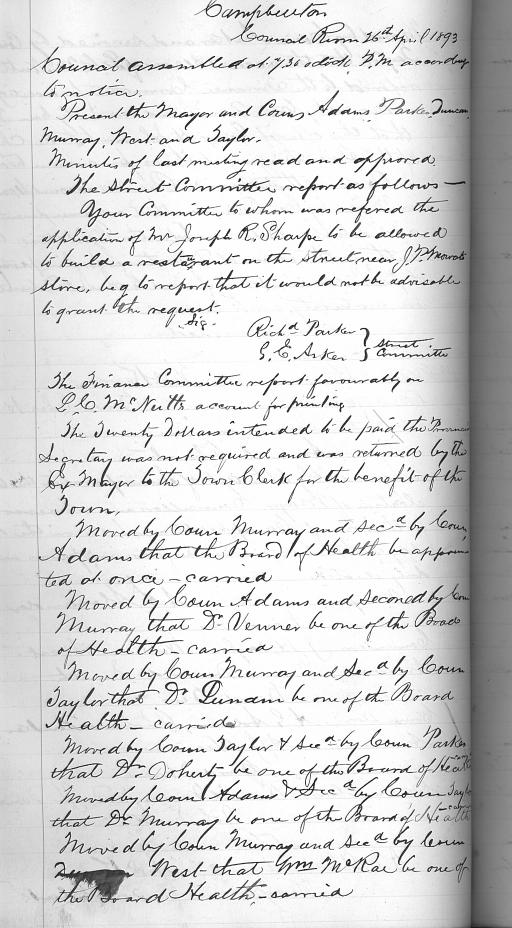 Campbellton
Council Room 26th April 1893
Council assembled at 7.30 oclock, P.M. according
to notice.
Present the Mayor and Couns Adams, Parker, Duncan,
Murray, West and Taylor.
Minutes of last meeting read and approved
The Street Committee report as follows—
Your Committee to whom was refered the
application of Mr Joseph R. Sharpe to be allowed
to build a restaurant on the street near J. P. Mowats
store, beg to report that it would not be advisable
to grant the request.
Sig.
Richd Parker
G. E. Asker } Street Committe
The Finance Committee report favourably on
L. C. McNutts account for printing
The Twenty Dollars intended to be paid the Provincial
Secretary was not required and was returned by the
Ex Mayor to the Town Clerk for the benefit of the
Town.
Moved by Coun Murray and secd by Coun
Adams that the Board of Health be appoin
ted at once – carried
Moved by Coun Adams and seconed by Coun
Murray that Dr Venner be one of the Board
of Health – carried
Moved by Coun Murray and Secd by Coun
Taylor that Dr Lunam be one of the Board
Health – carried
Moved by Coun Taylor & Secd by Coun Parker
that Dr Doherty be one of the Board of Health
Moved by Coun Adams & Secd by Coun Taylor
that Dr Murray be one of the Board of Health carried
Moved by Coun Murray and secd by Coun
West that Wm McRae be one of
the Board Health – carried